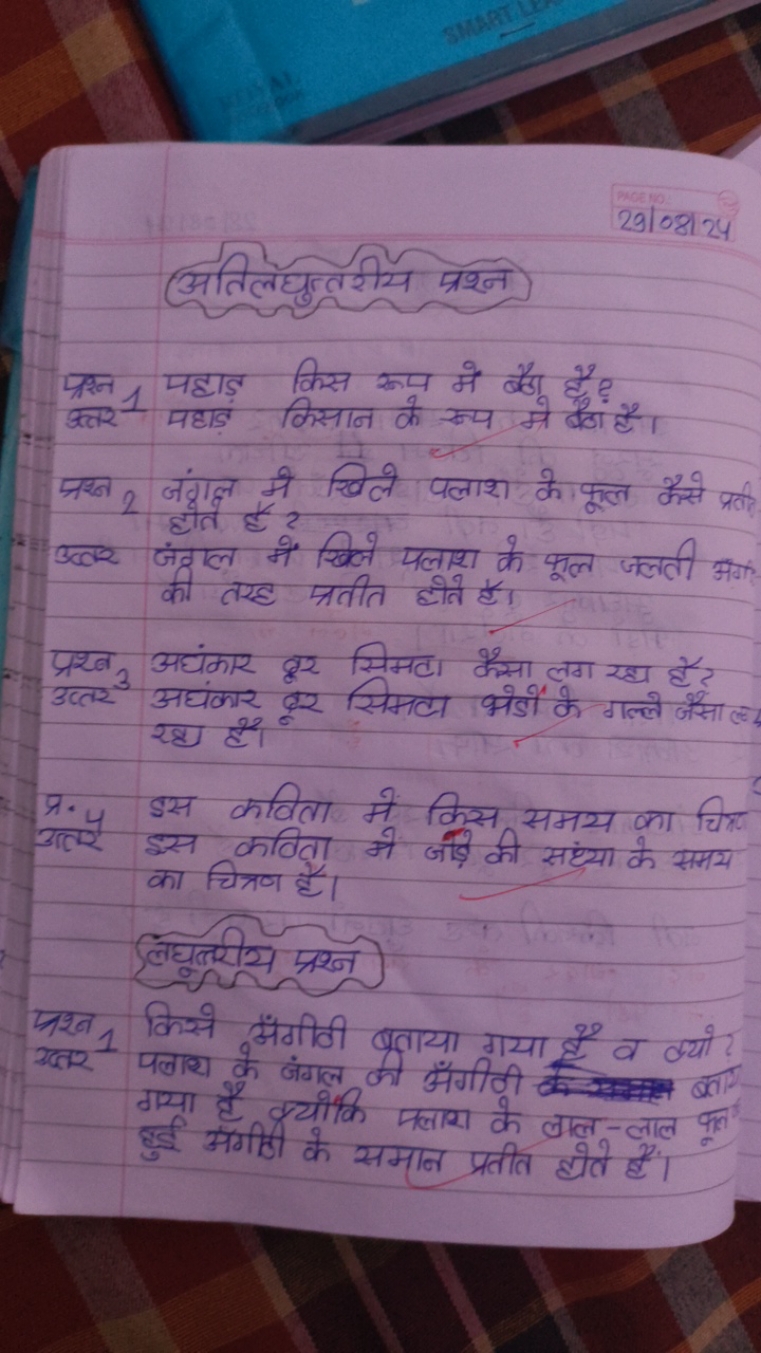 SMART LEA
PAGE NO.:
29/08/24
अतिलघुत्तरीय प्रश्न
प्रश्न 1 पहाड़ किस रूप में बैठा है?
उत्तर पहाड़ किसान के रूप में बैठा है।
प्रश्न 2 जंगल में खिले पलाश के फूल कैसे
होते हैं?
उत्तर जंगल में खिले पलाश के फूल जलती
की तरह प्रतीत होते हैं।
प्रश्न 3 अधंकार दूर सिमटा कैसा लग रहा है?
उत्तर अधंकार दूर सिमटा भेडों के गल्ले जैसा
रहा है।
प्र. 4 इस कविता में किस समय का
उत्तर इस कविता में जाड़े की संध्या के समय
का चित्रण है।
लघूतरीय प्रश्न
प्रश्न 1 किसे अँगीठी बताया गया है व क्यो?
उत्तर पलाश के जंगल को अँगीठी
गया है क्योंकि पलाश के लाल-लाल
हुई अंगीठी के समान प्रतीत होते हैं।